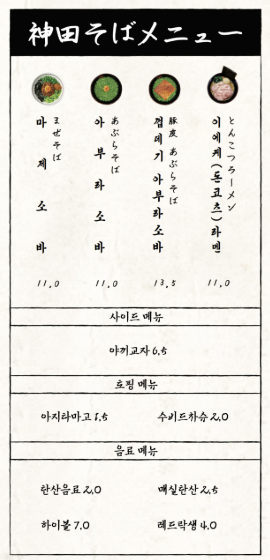 神田そばメニュー
마제소바
まぜそば
11.0
아부라소바
あぶらそば
11.0
껍데기 아부라소바
豚皮 あぶらそば
13.5
이에케(돈코츠)라멘
とんこつラーメン
11.0
사이드 메뉴
야끼교자 6.5
토핑 메뉴
아지타마고 1.5
수비드차슈 2.0
음료 메뉴
탄산음료 2.0
매실탄산 2.5
하이볼 7.0
레드락생 4.0